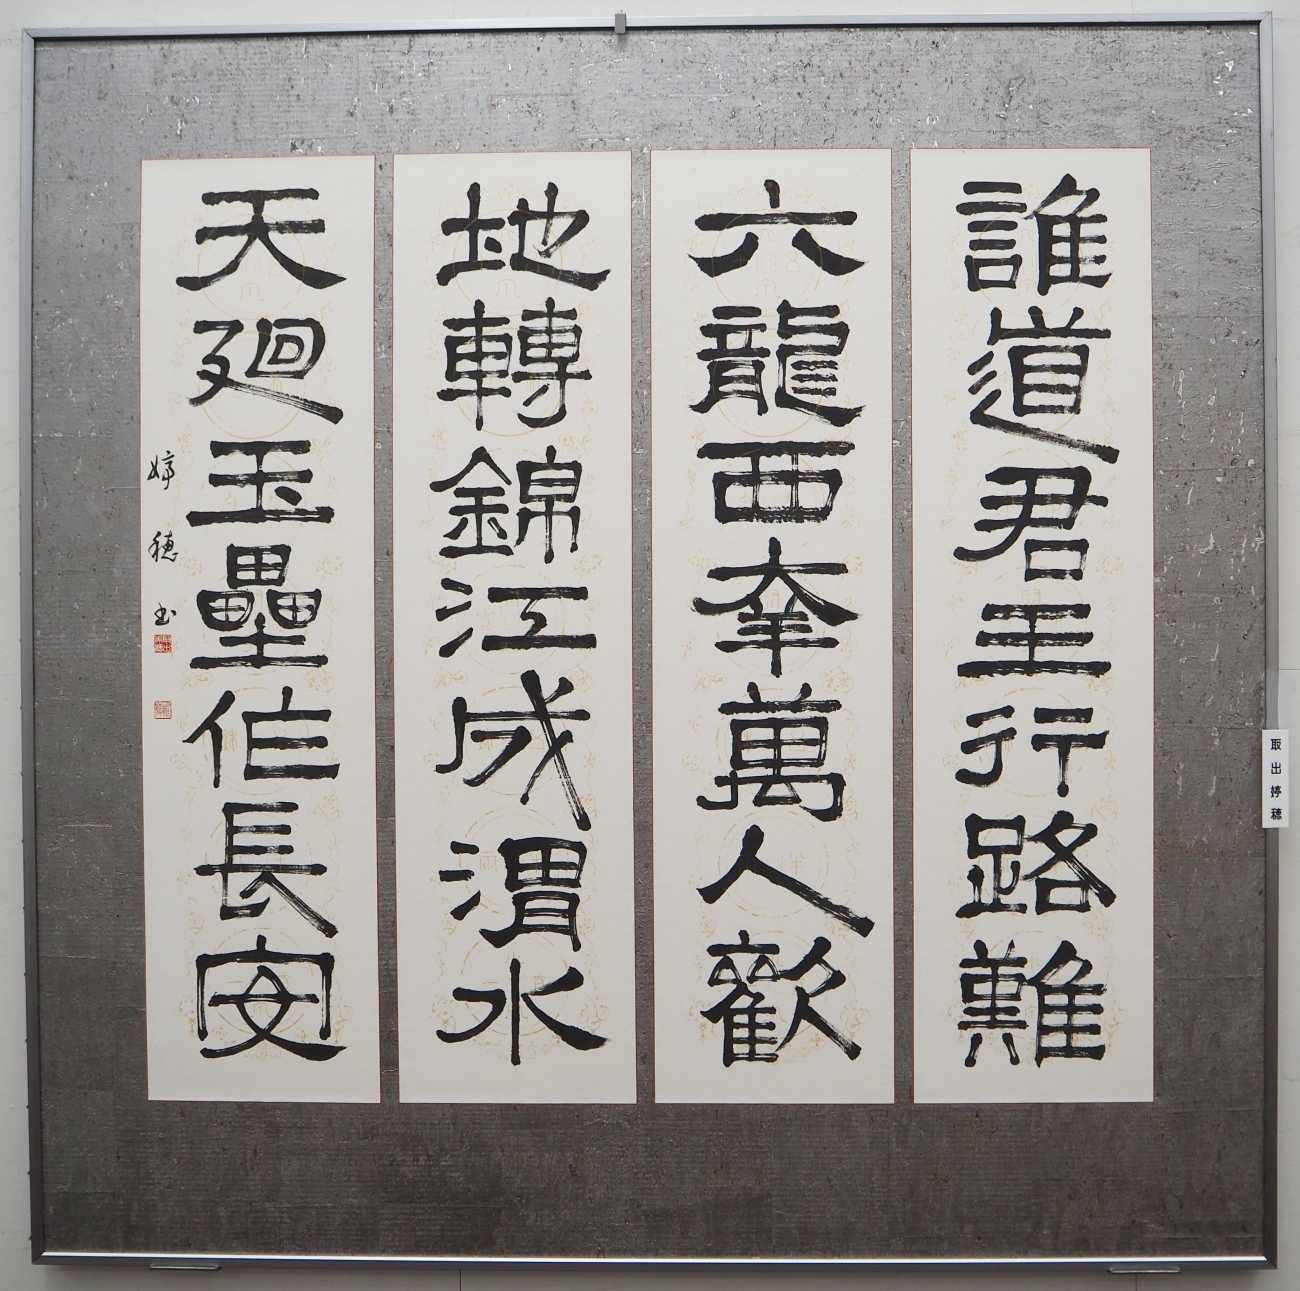 誰道君王行路難
六龍西幸萬人歡
地轉錦江成渭水
天廻玉壘作長安
婷穂書
取出婷穂